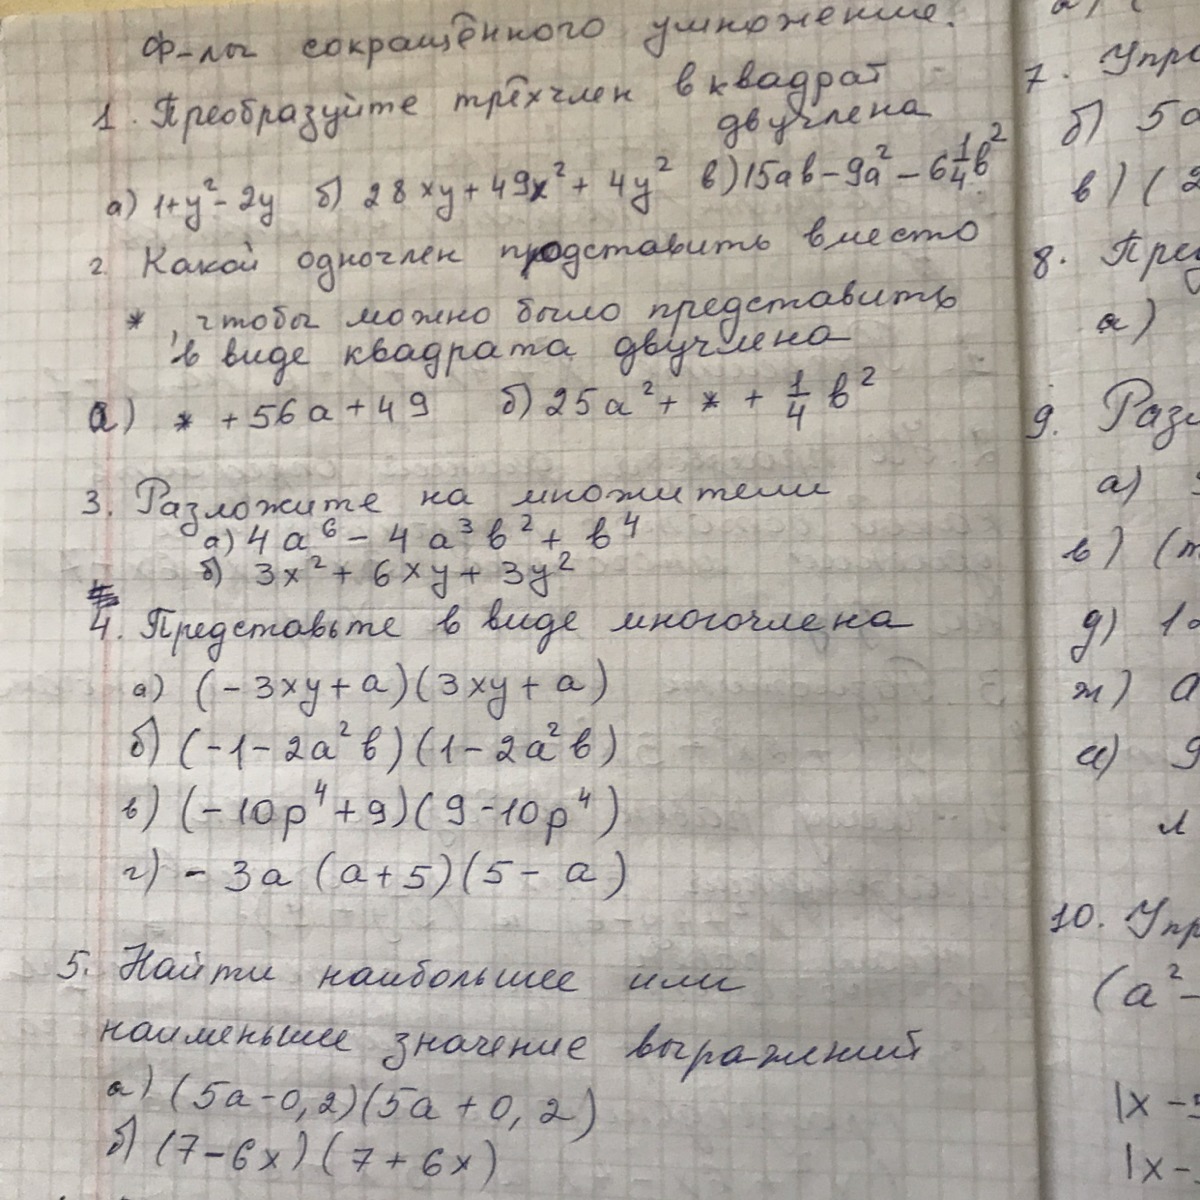 Ф-лы сокращённого умножение.
1. Преобразуйте трёхчлен в квадрат
двучлена
а) 1+y²-2y б) 28xy+49x²+4y² в) 15ab-9a²-6 1/4 b²
2. Какой одночлен прдставить вместо
* , чтобы можно было представить
в виде квадрата двучлена
а) * +56a+49 б) 25a²+ * + 1/4 b²
3. Разложите на множители
а) 4a⁶ - 4a³b² + b⁴
б) 3x² + 6xy + 3y²
4. Представьте в виде многочлена
а) (-3xy+a)(3xy+a)
б) (-1-2a²b)(1-2a²b)
в) (-10p⁴+9)(9-10p⁴)
г) -3a (a+5)(5-a)
5. Найти наибольшее или
наименьшее значение выражений
а) (5a-0,2)(5a+0,2)
б) (7-6x)(7+6x)
7. Упро
б) 5a
в) (2
8. Пред
а)
9. Разл
а)
в) (m
д) 1
ж) a
и) 9
л
10. Упр
(a²-
|x-5
|x-